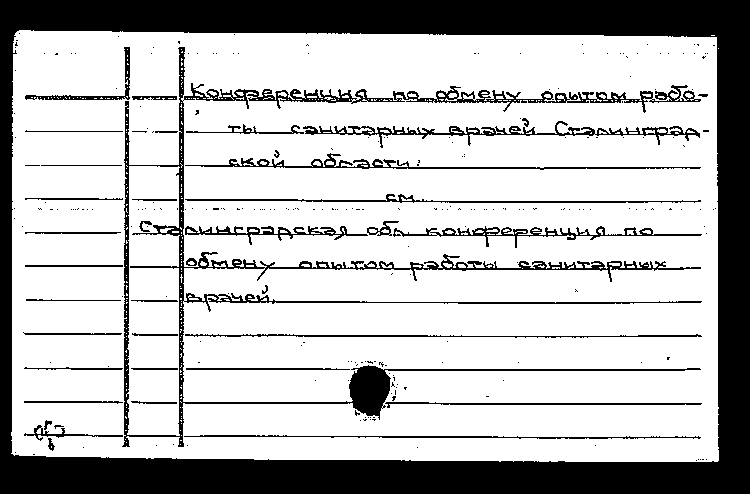 Конференция по обмену опытом рабо-
ты санитарных врачей Сталинград-
ской области.
см.
Сталинградская обл. конференция по
обмену опытом работы санитарных
врачей.